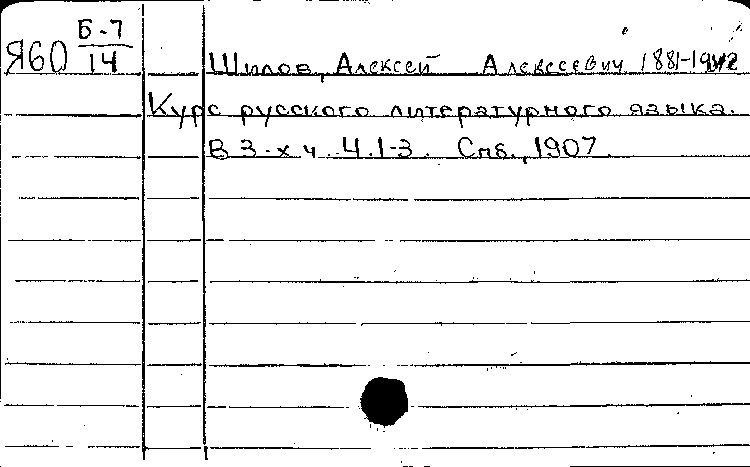 Я60 Б-7/14
Шилов, Алексей Алексеевич, 1881-1942
Курс русского литературного языка.
В 3-х ч. Ч.1-3. Спб., 1907.